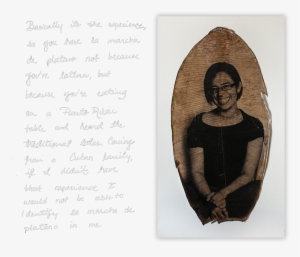 Basically it's the experiences,
so you have la mancha
de platano not because
you're latina, but
because you're eating
on a Puerto Rican
table and heard the
traditional
from a Cuban family,
if I didn't have
that experience I
would not be able to
identify la mancha de
platano in me